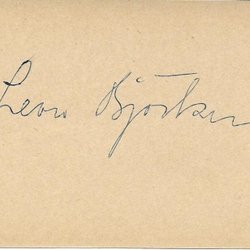 Leon Björker